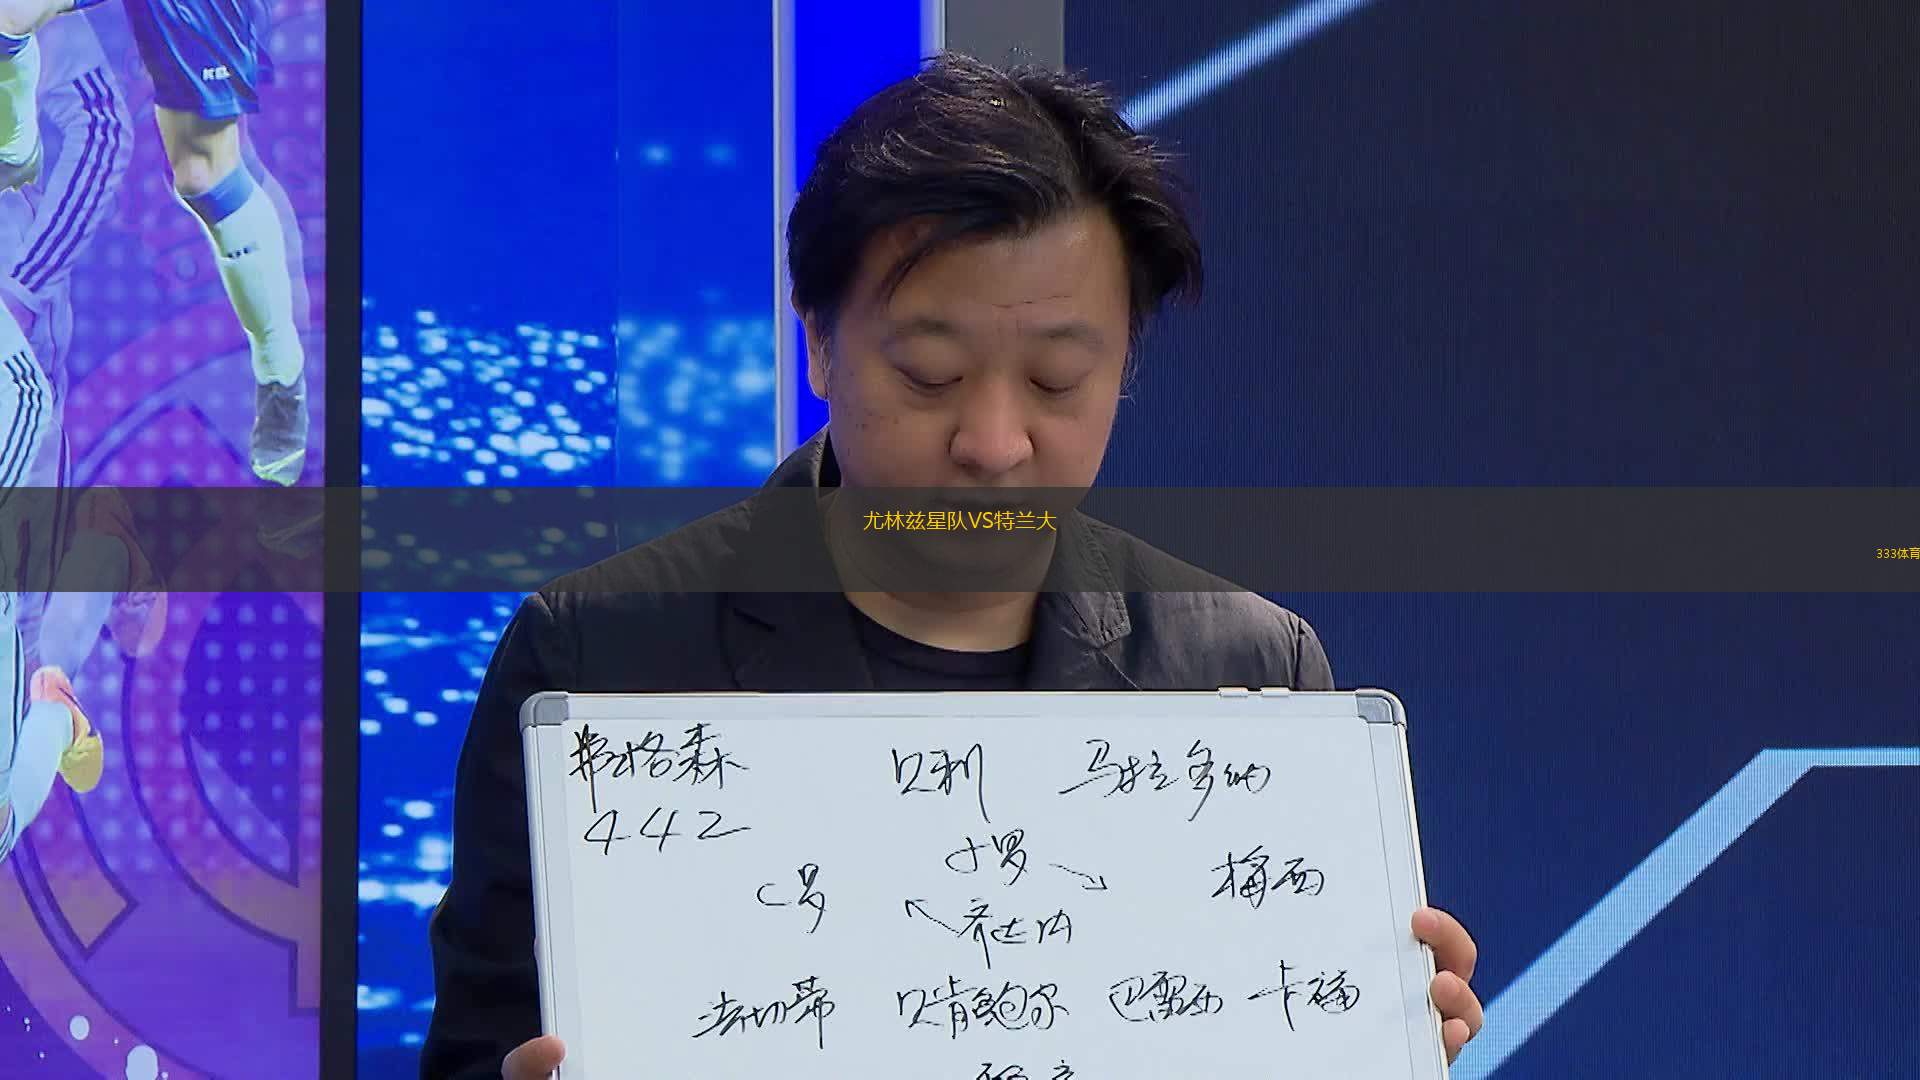 尤林兹星队VS特兰大
333体育
弗格森 贝利 马拉多纳
442
小罗
C罗 梅西
齐达内
法切蒂 贝肯鲍尔 巴雷西 卡福